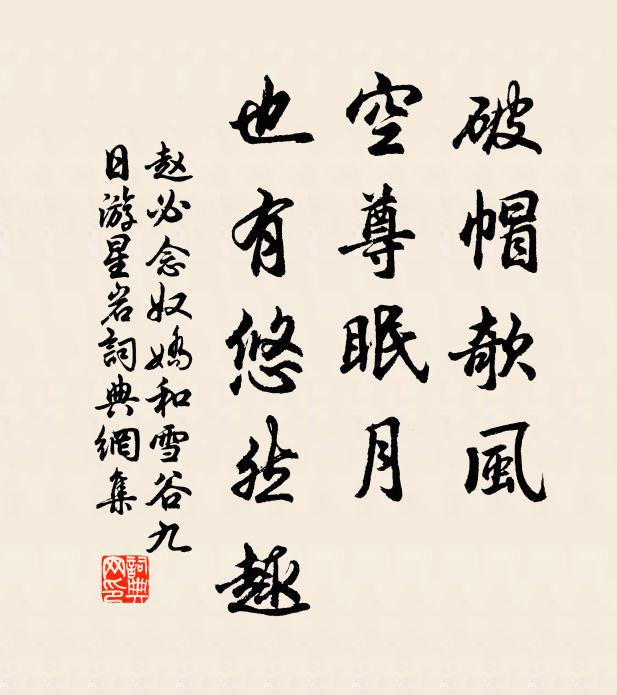 破帽欹風
空尊眠月
也有悠然趣
赵必念奴嬌和雪谷九
日游星岩詞典網集
詞典
网印